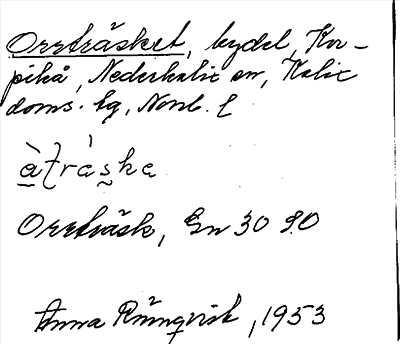 Orrträsket, bydel, Kor-
pikå, Nederkalix sn, Kalix
doms. lg, Norrb. l
Orrträsk, Gn 30 SO
Anna Rünnqvist, 1953